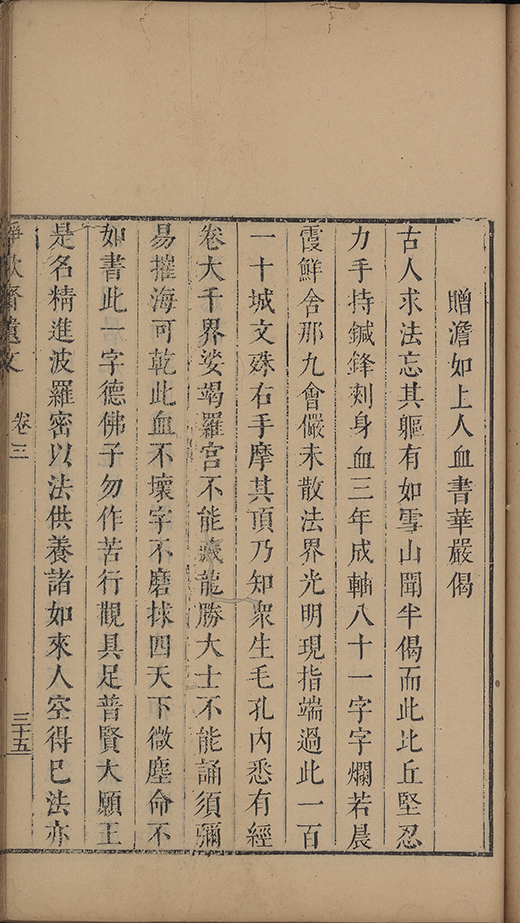 贈澹如上人血書華嚴偈
古人求法忘其軀有如雪山聞半偈而此比丘堅忍
力手持鍼鋒刺身血三年成軸八十一字字爛若晨
霞鮮舍那九會儼未散法界光明現指端過此一百
一十城文殊右手摩其頂乃知衆生毛孔內悉有經
卷大千界娑竭羅宮不能藏龍勝大士不能誦須彌
易摧海可乾此血不壞字不磨捄四天下微塵命不
如書此一字德佛子勿作苦行觀具足普賢大願王
是名精進波羅密以法供養諸如來人空得巳法亦
齋遺文 卷三 三十五